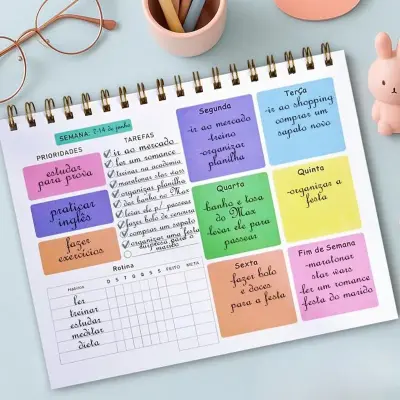 SEMANA: 7-14 de junho
PRIORIDADES
estudar
para prova
praticar
inglês
fazer
exercícios
TAREFAS
ir ao mercado
ler um romance
treinar na academia
maratonar star wars
organizar planilha
dar banho no Max
levar ele p/ passear
fazer bolo de cenoura
comprar um sapato
organizar uma festa
surpresa para o
marido
Segunda
-ir ao mercado
-treino
-organizar
planilha
Terça
-ir ao shopping
comprar um
sapato novo
Quarta
-banho e tosa
do Max
-levar ele para
passear
Quinta
-organizar a
festa
Sexta
-fazer bolo
e doces
para a festa
Fim de Semana
-maratonar
star wars
-ler um romance
festa do marido
Rotina
D S T Q Q S S FEITO META
ler
treinar
estudar
meditar
dieta